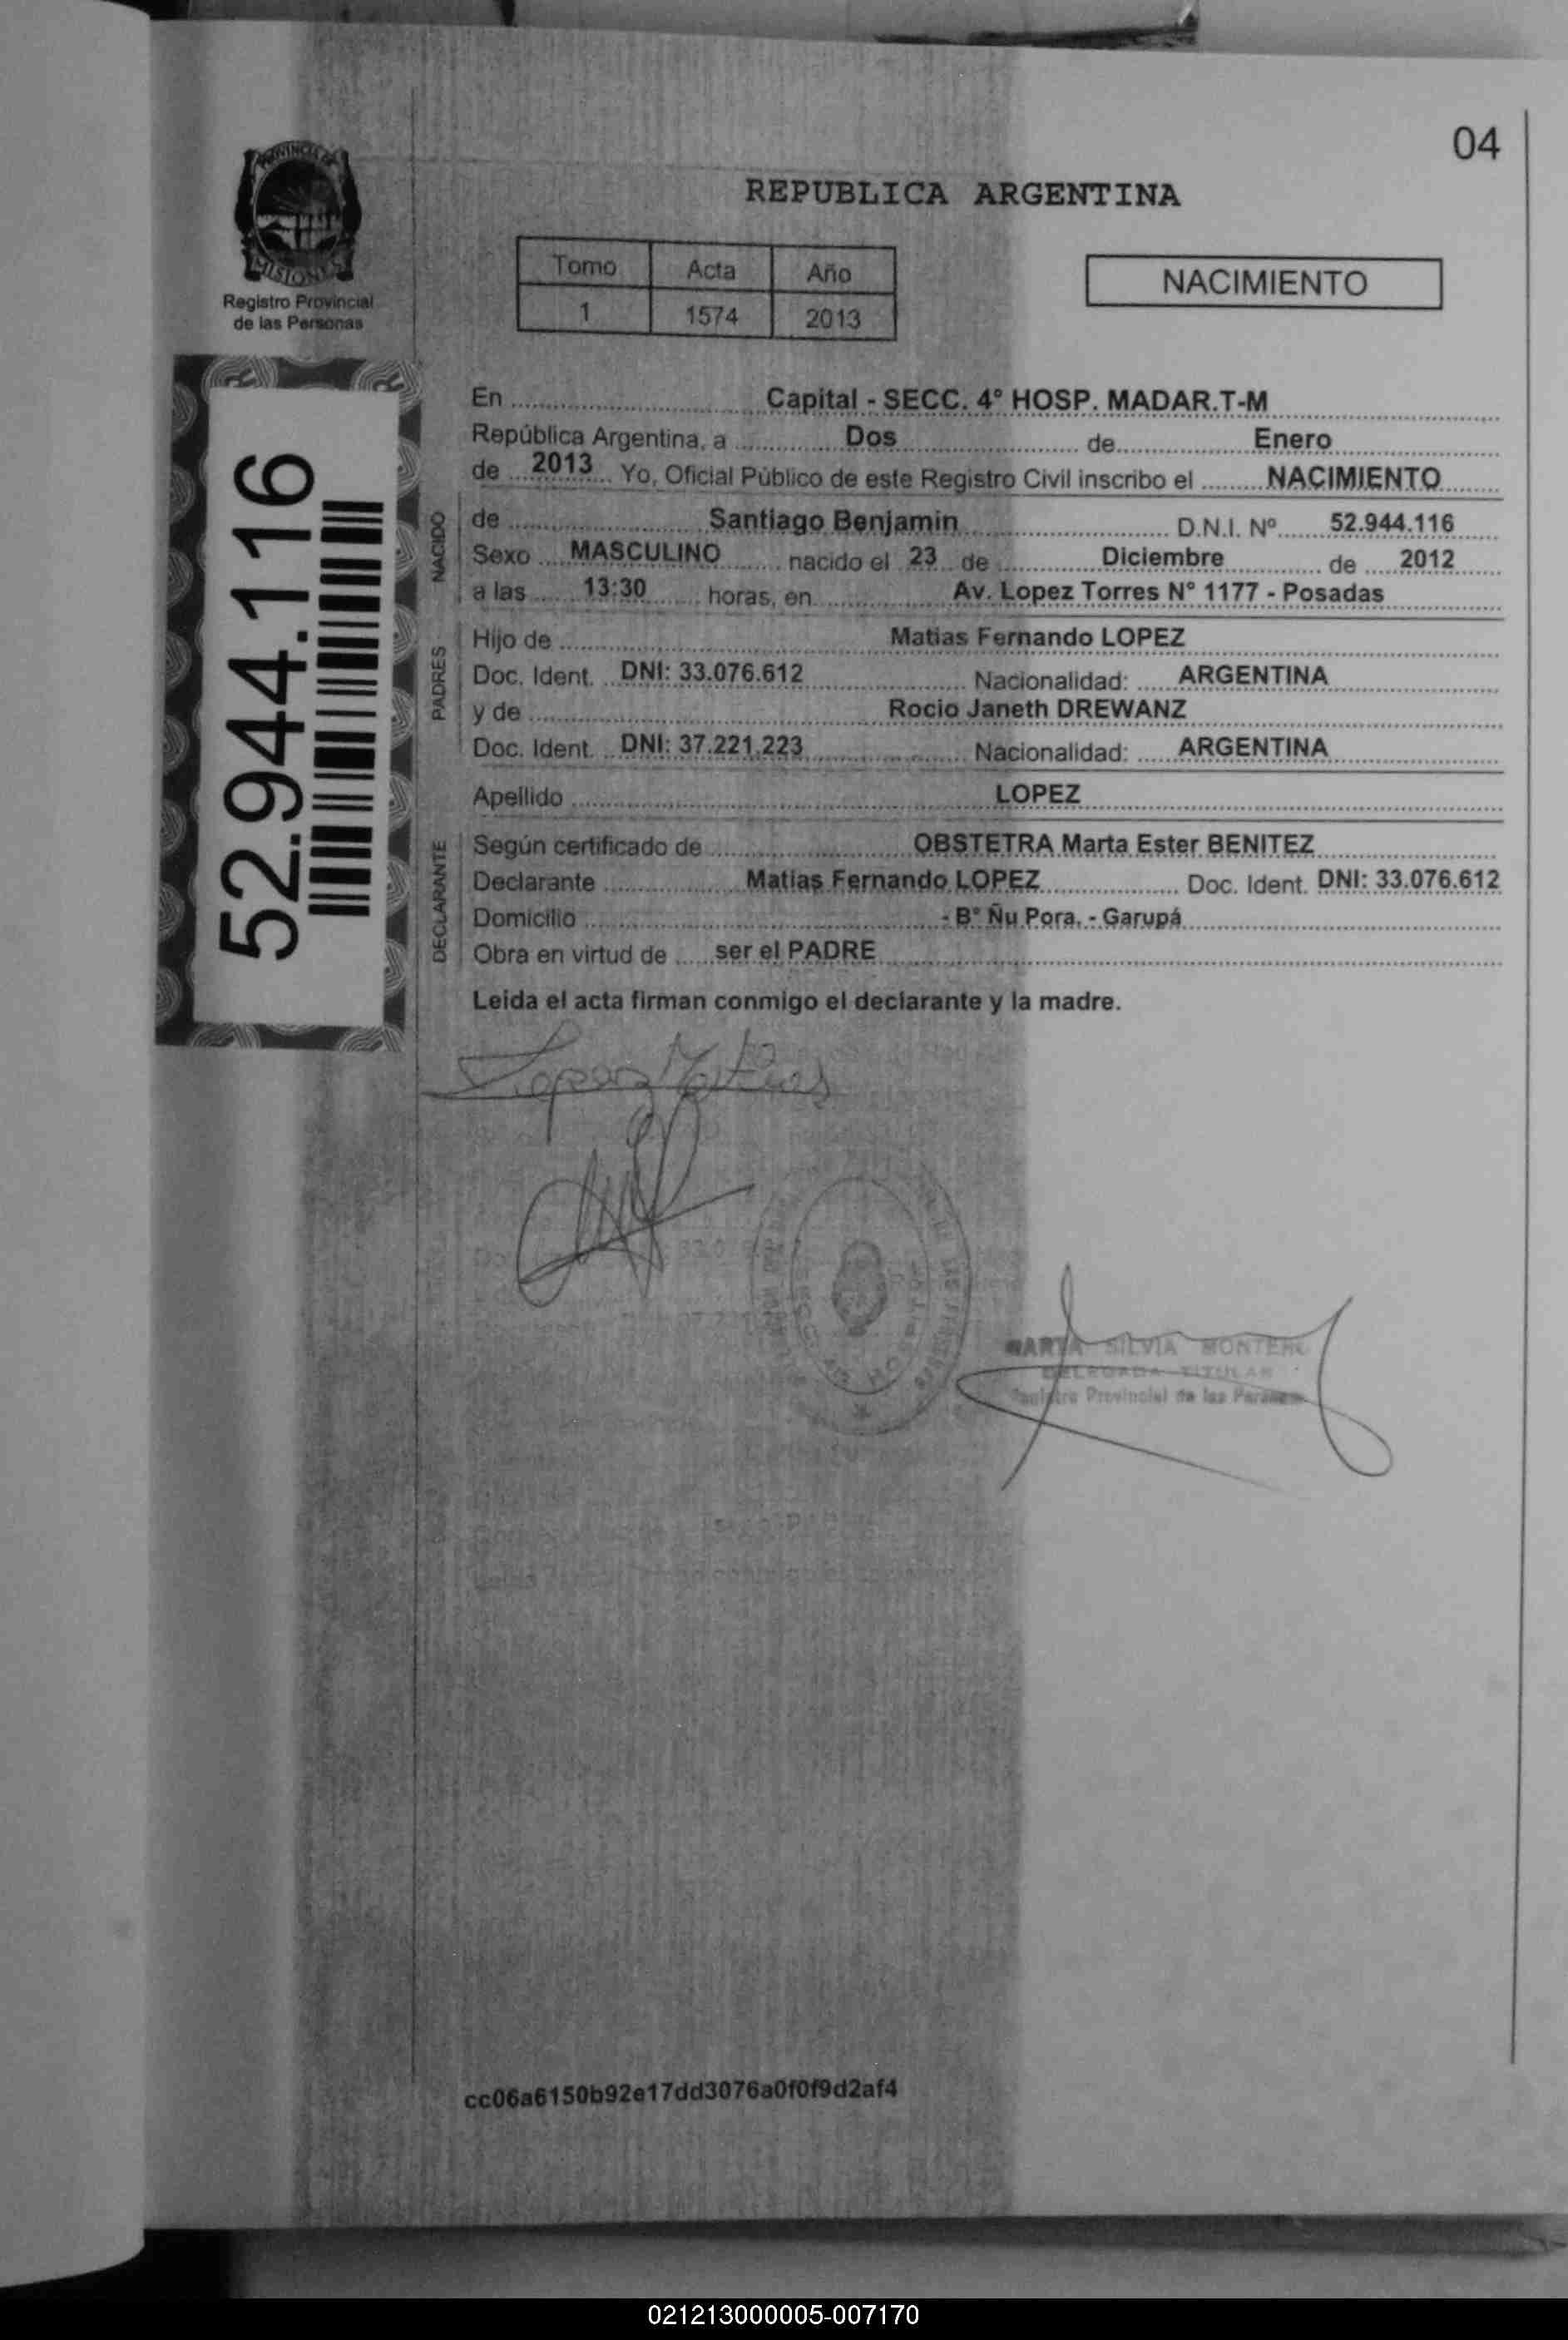 04
PROVINCIA DE
MISIONES
Registro Provincial
de las Personas
REPUBLICA ARGENTINA
Tomo Acta Año
1 1574 2013
NACIMIENTO
52.944.116
En Capital - SECC. 4° HOSP. MADAR.T-M
República Argentina, a Dos de Enero
de 2013 Yo, Oficial Público de este Registro Civil inscribo el NACIMIENTO
NACIDO
de Santiago Benjamin D.N.I. Nº 52.944.116
Sexo MASCULINO nacido el 23 de Diciembre de 2012
a las 13:30 horas, en Av. Lopez Torres N° 1177 - Posadas
PADRES
Hijo de Matias Fernando LOPEZ
Doc. Ident. DNI: 33.076.612 Nacionalidad: ARGENTINA
y de Rocio Janeth DREWANZ
Doc. Ident. DNI: 37.221.223 Nacionalidad: ARGENTINA
Apellido LOPEZ
DECLARANTE
Según certificado de OBSTETRA Marta Ester BENITEZ
Declarante Matias Fernando LOPEZ Doc. Ident. DNI: 33.076.612
Domicilio - B° Ñu Pora. - Garupá
Obra en virtud de ser el PADRE
Leida el acta firman conmigo el declarante y la madre.
Lopez Matias
MARTA SILVIA MONTERO
DELEGADA TITULAR
Registro Provincial de las Personas
cc06a6150b92e17dd3076a0f0f9d2af4
021213000005-007170